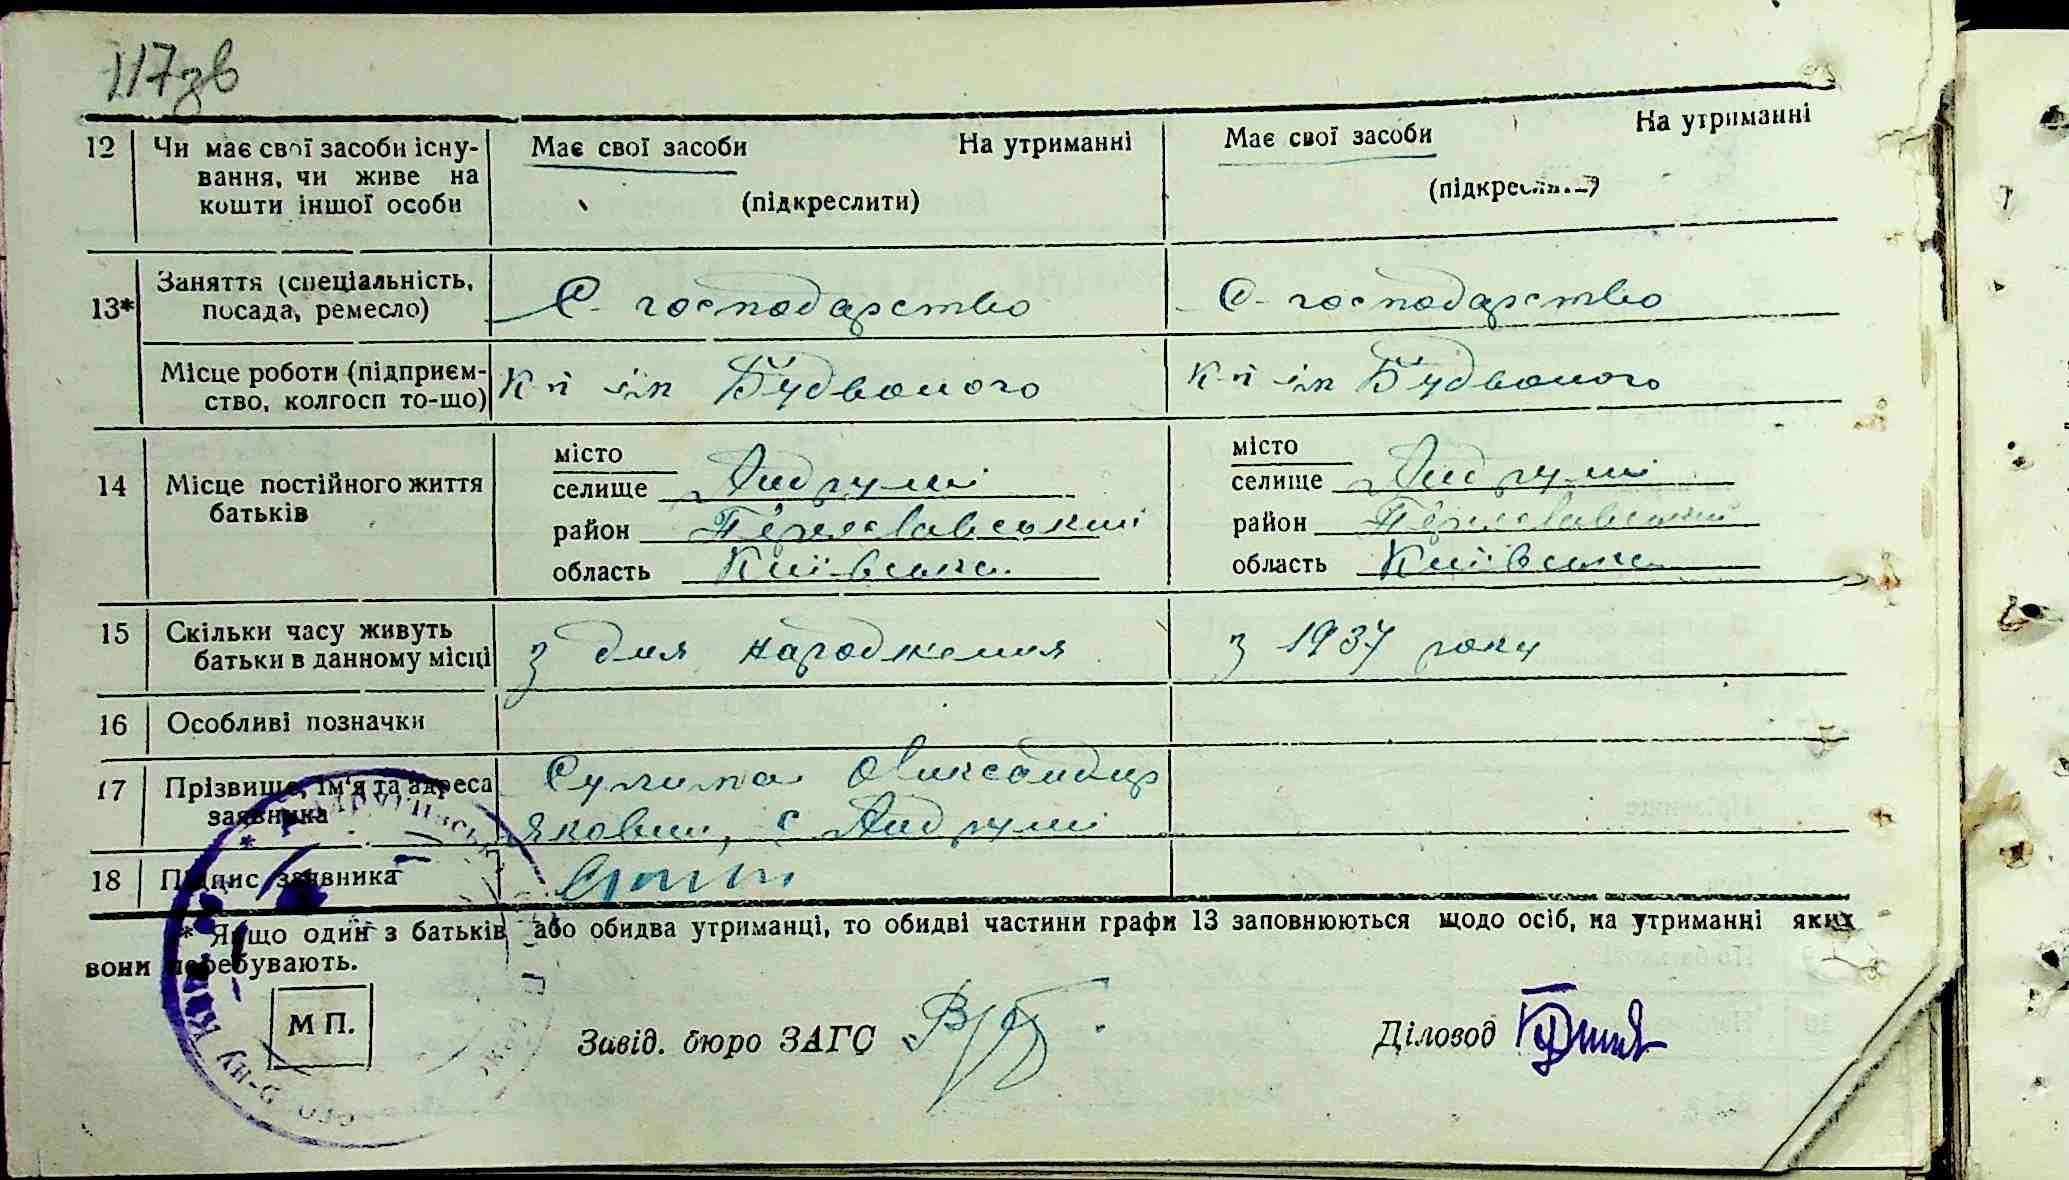 117зв
12 Чи має свої засоби існу- Має свої засоби На утриманні Має свої засоби На утриманні
вання, чи живе на
кошти іншої особи (підкреслити) (підкреслити)
13* Заняття (спеціальність, С. господарство С. господарство
посада, ремесло)
Місце роботи (підприєм- К-п ім Будьоного К-п ім Будьоного
ство, колгосп то-що)
14 Місце постійного життя місто місто
батьків селище Андруші селище Андруші
район Переяславський район Переяславський
область Київська область Київська
15 Скільки часу живуть з дня народження з 1937 року
батьки в данному місці
16 Особливі позначки
17 Прізвище, ім'я та адреса Сулима Олександр
заявника Якович, с Андруші
18 Підпис заявника
* Якщо один з батьків або обидва утриманці, то обидві частини графи 13 заповнюються щодо осіб, на утриманні яких
вони перебувають.
М П. Завід. бюро ЗАГС Діловод